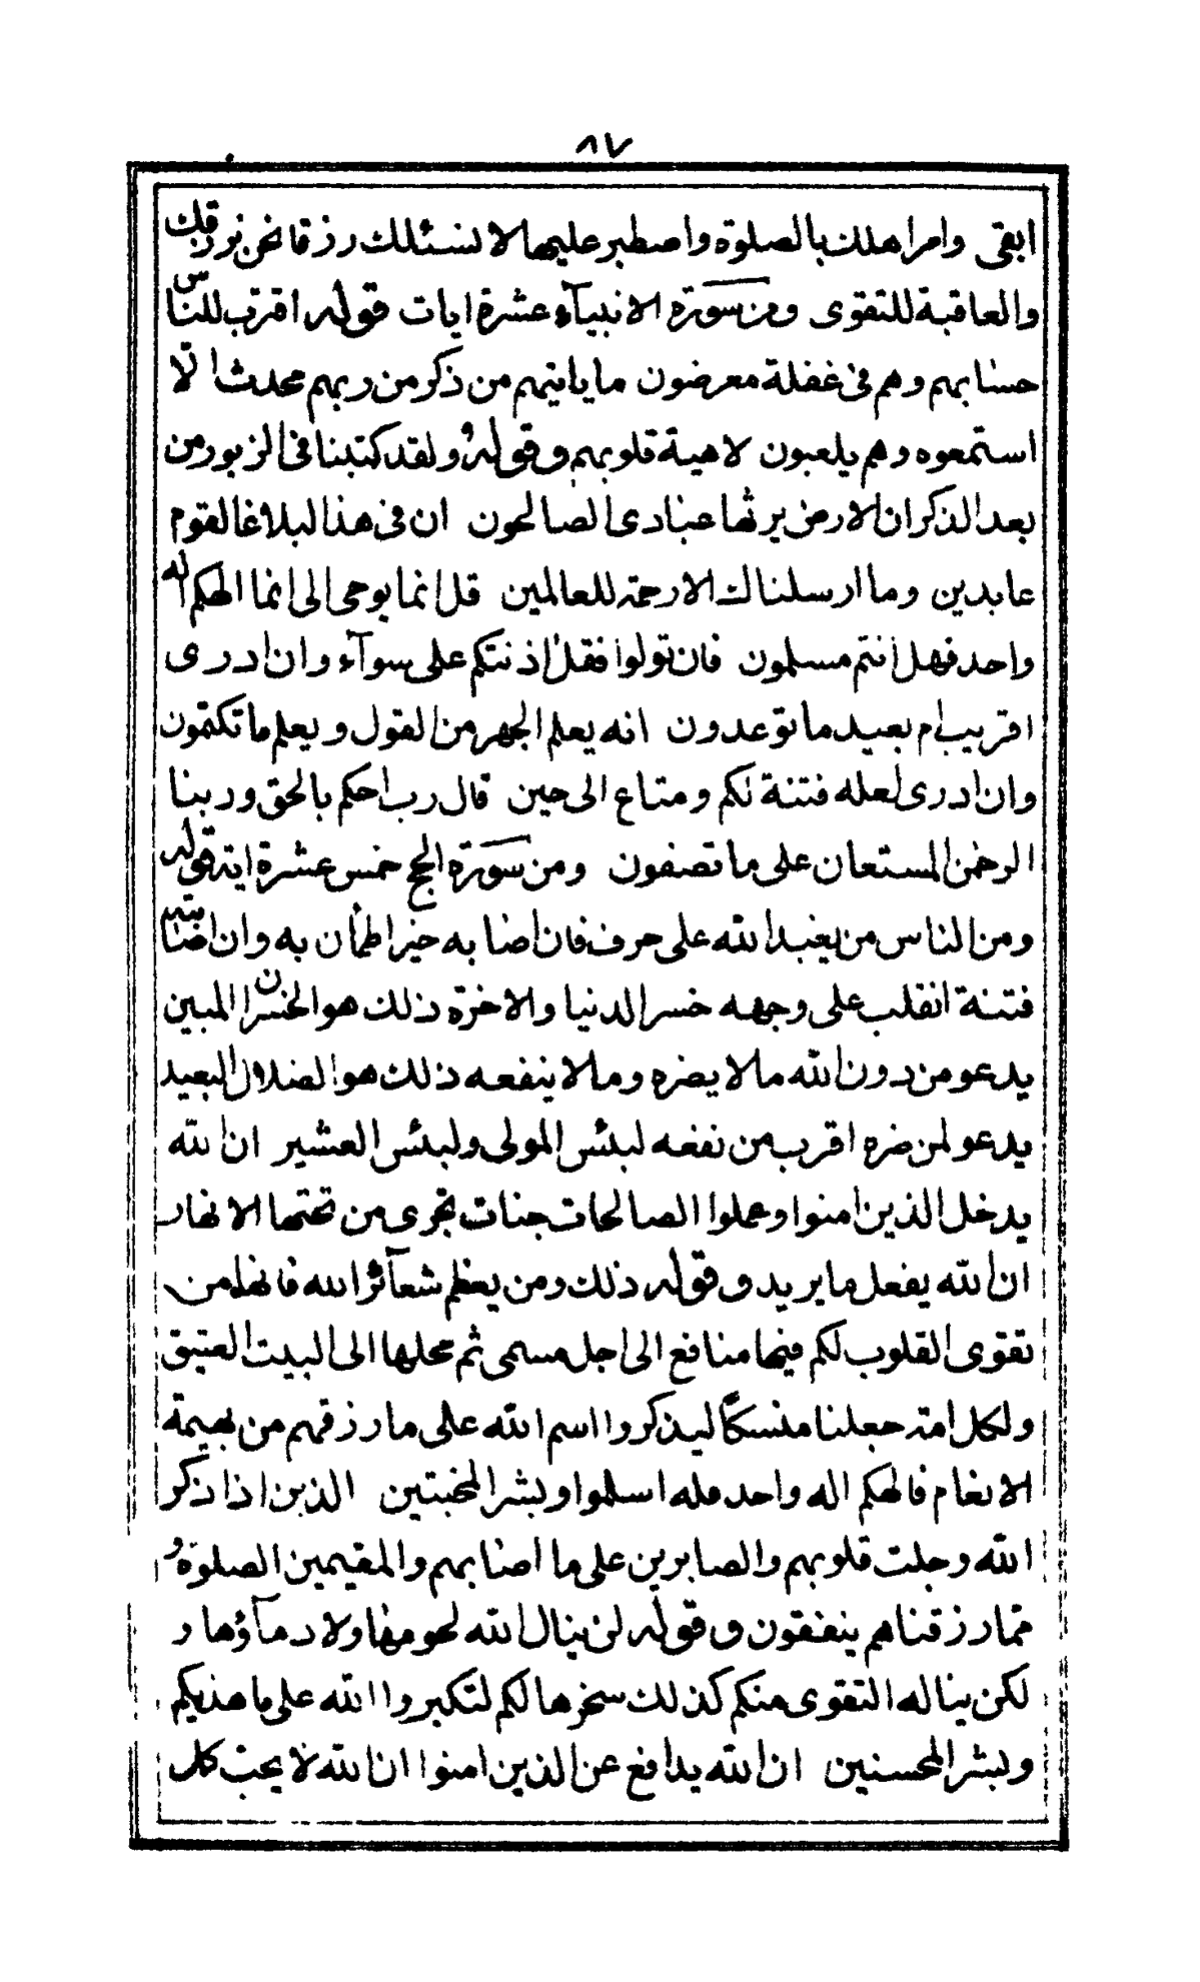 ٨٧
ابقى وامر اهلك بالصلوة واصطبر عليها لا نسئلك رزقا نحن نرزقك
والعاقبة للتقوى ومن سورة الانبيآء عشرة ايات قوله اقترب للناس
حسابهم وهم فى غفلة معرضون ما ياتيهم من ذكر من ربهم محدث الّا
استمعوه وهم يلعبون لاهية قلوبهم وقوله ولقد كتبنا فى الزبور من
بعد الذكر ان الارض يرثها عبادى الصالحون ان فى هذا لبلاغا لقوم
عابدين وما ارسلناك الا رحمة للعالمين قل انما يوحى الى انما الهكم اله
واحد فهل انتم مسلمون فان تولوا فقل اذنتكم على سوآء وان ادرى
اقريب ام بعيد ما توعدون انه يعلم الجهر من القول ويعلم ما تكتمون
وان ادرى لعله فتنة لكم ومتاع الى حين قال رب احكم بالحق وربنا
الرحمن المستعان على ما تصفون ومن سورة الحج خمس عشرة اية قوله
ومن الناس من يعبد الله على حرف فان اصابه خير اطمأن به وان اصابته
فتنة انقلب على وجهه خسر الدنيا والاخرة ذلك هو الخسران المبين
يدعو من دون الله ما لا يضره وما لا ينفعه ذلك هو الضلال البعيد
يدعو لمن ضره اقرب من نفعه لبئس المولى ولبئس العشير ان الله
يدخل الذين امنوا وعملوا الصالحات جنات تجرى من تحتها الانهار
ان الله يفعل ما يريد وقوله ذلك ومن يعظم شعآئر الله فانها من
تقوى القلوب لكم فيها منافع الى اجل مسمى ثم محلها الى البيت العتيق
ولكل امة جعلنا منسكاً ليذكروا اسم الله على ما رزقهم من بهيمة
الانعام فالهكم اله واحد فله اسلموا وبشر المخبتين الذين اذا ذكر
الله وجلت قلوبهم والصابرين على ما اصابهم والمقيمين الصلوة و
مما رزقناهم ينفقون وقوله لن ينال الله لحومها ولا دمآؤها و
لكن يناله التقوى منكم كذلك سخرها لكم لتكبروا الله على ما هديكم
وبشر المحسنين ان الله يدافع عن الذين امنوا ان الله لا يحب كل